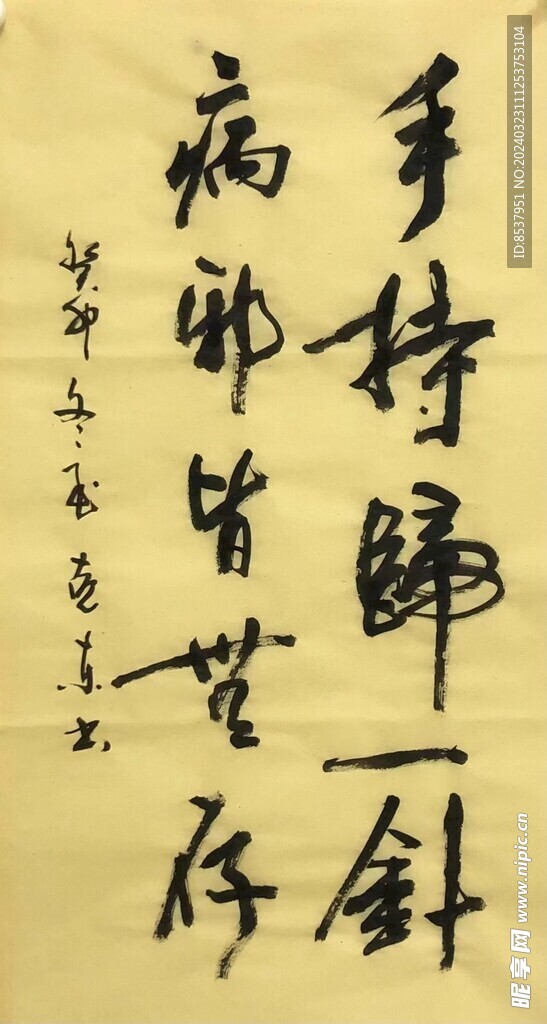 手持歸一針
病邪皆無存
癸卯冬月克东书
ID:8537951 NO:20240323111253753104
昵享网 www.nipic.cn